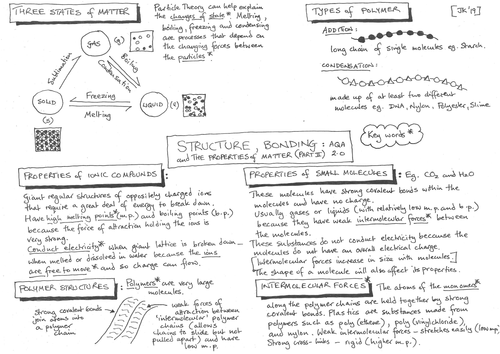 THREE STATES OF MATTER
Particle Theory can help explain
the changes of state* Melting,
boiling, freezing and condensing
are processes that depend on
the changing forces between
the particles*
GAS (g)
Sublimation
Boiling
Condensation
SOLID
(s)
Freezing
Melting
LIQUID (l)
TYPES OF POLYMER
[JK'19]
ADDITION:
long chain of single molecules eg. Starch.
CONDENSATION:
made up of at least two different
molecules eg. DNA, Nylon, Polyester, Slime
STRUCTURE, BONDING: AQA
and THE PROPERTIES OF MATTER (PART II) 2.0
Key words*
PROPERTIES OF IONIC COMPOUNDS:
Giant regular structures of oppositely charged ions
that require a great deal of energy to break down.
Have high melting points* (m.p.) and boiling points (b.p.)
because the force of attraction holding the ions is
very strong.
Conduct electricity* when giant lattice is broken down –
when melted or dissolved in water because the ions
are free to move* and so charge can flow.
PROPERTIES OF SMALL MOLECULES:
Eg. CO2 and H2O
These molecules have strong covalent bonds within the
molecules and have no charge.
Usually gases or liquids (with relatively low m.p. and b.p.)
because they have weak intermolecular forces* between
the molecules.
These substances do not conduct electricity because the
molecules do not have an overall electrical charge.
[Intermolecular forces increase in size with molecules]
The shape of a molecule will also affect its properties.
POLYMER STRUCTURES:
Polymers* are very large
molecules.
strong covalent bonds
join atoms into
a polymer
chain
weak forces of
attraction between
'intermolecular' polymer
chains (allows
chains to slide but not
pulled apart) and have
low m.p.
INTERMOLECULAR FORCES
The atoms of the monomers*
along the polymer chains are held together by strong
covalent bonds. Plastics are substances made from
polymers such as poly(ethene), poly(vinylchloride)
and nylon. Weak intermolecular forces – stretches easily (low mp)
Strong cross-links – rigid (higher m.p.).